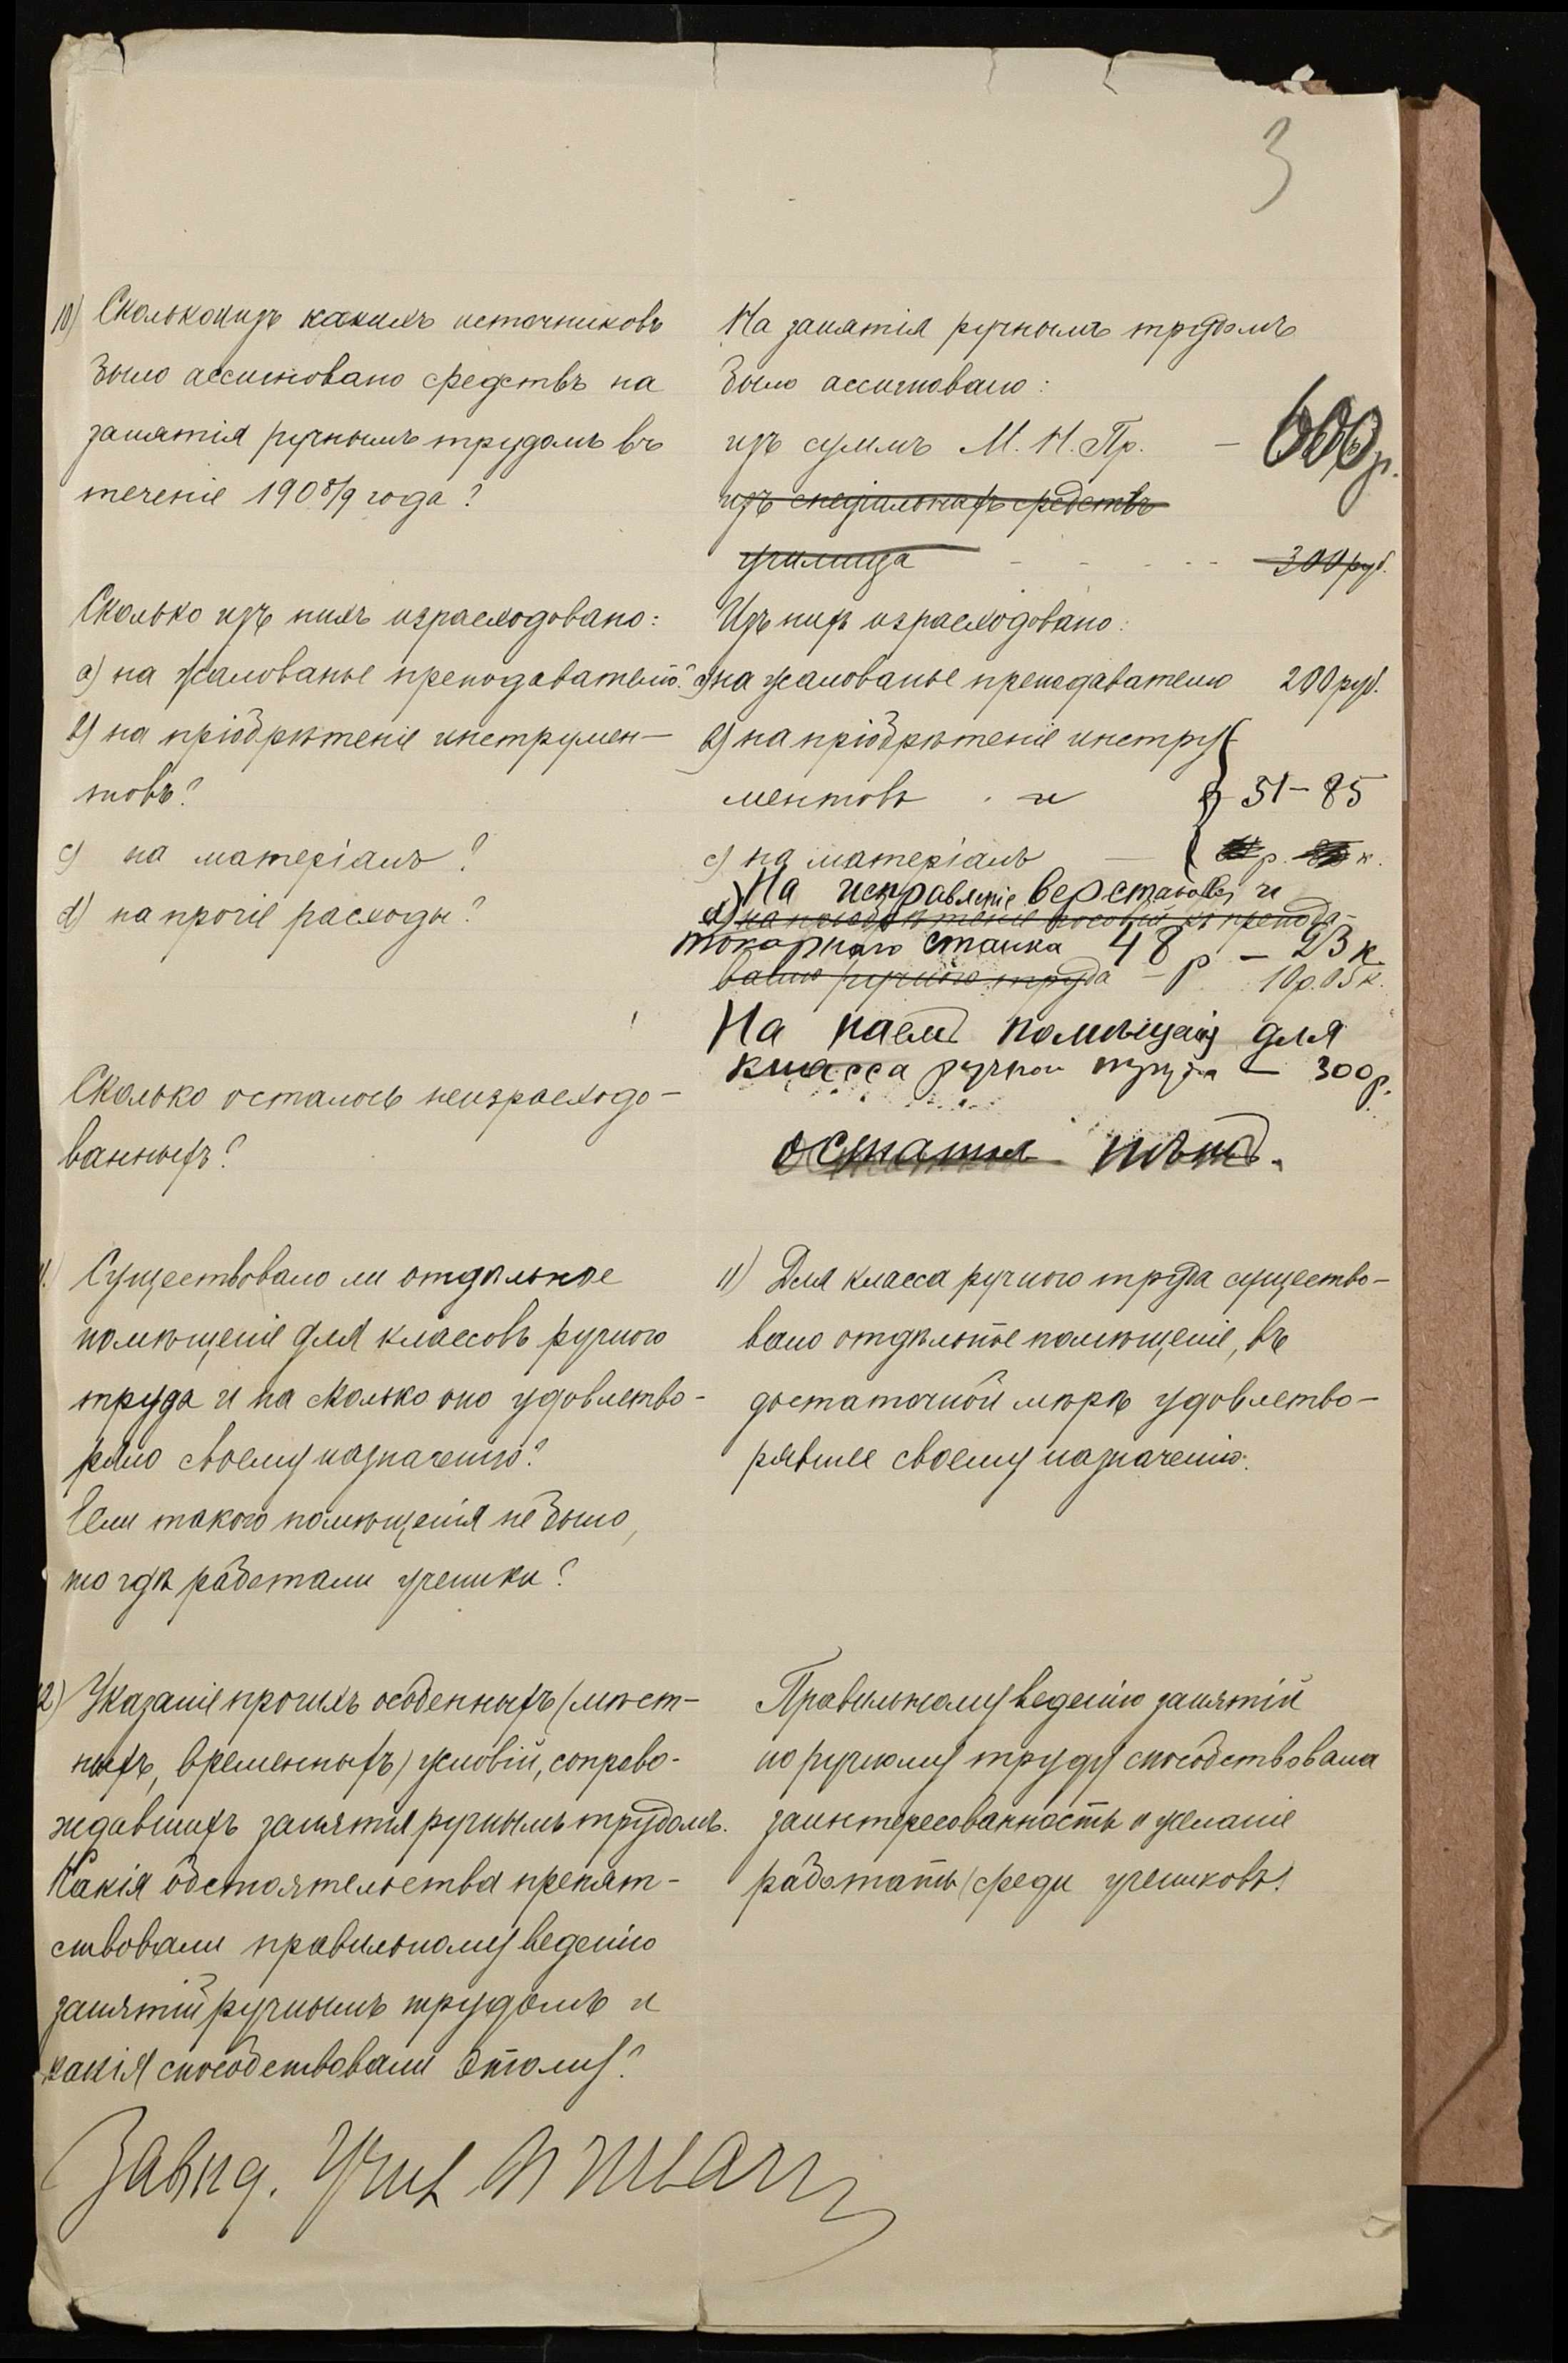 3
10) Сколько и изъ какихъ источниковъ
было ассигновано средствъ на
занятія ручнымъ трудомъ въ
теченіе 1908/9 года?
На занятія ручнымъ трудомъ
было ассигновано:
изъ суммъ М. Н. Пр. — 600 р.
изъ спеціальныхъ средствъ
училища - - - - 300 руб.
Сколько изъ нихъ израсходовано:
а) на жалованье преподавателю?
b) на пріобрѣтеніе инструмен-
товъ?
c) на матеріалъ?
d) на прочіе расходы?
Изъ нихъ израсходовано:
а) на жалованье преподавателю 200 руб.
b) на пріобрѣтеніе инстру-
ментовъ и 51 – 85
c) на матеріалъ — р. к.
На исправленіе верстаковъ и
d) на пріобрѣтеніе пособій къ препода-
токарнаго станка 48 р – 23 к.
ванію ручного труда — 10 р. 05 к.
На наемъ помѣщенія для
класса ручного труда — 300 р.
Сколько осталось неизрасходо-
ванныхъ?
остатка нѣтъ.
11. Существовало ли отдѣльное
помѣщеніе для классовъ ручного
труда и на сколько оно удовлетво-
ряло своему назначенію?
Если такого помѣщенія не было,
то гдѣ работали ученики?
11) Для класса ручного труда существо-
вало отдѣльное помѣщеніе, въ
достаточной мѣрѣ удовлетво-
рявшее своему назначенію.
12) Указаніе прочихъ особенныхъ (мѣст-
ныхъ, временныхъ) условій, сопрово-
ждавшихъ занятія ручнымъ трудомъ.
Какія обстоятельства препят-
ствовали правильному веденію
занятій ручнымъ трудомъ и
какія способствовали этому?
Правильному веденію занятій
по ручному труду способствовала
заинтересованность и желаніе
работать среди учениковъ.
Завѣд. Учил